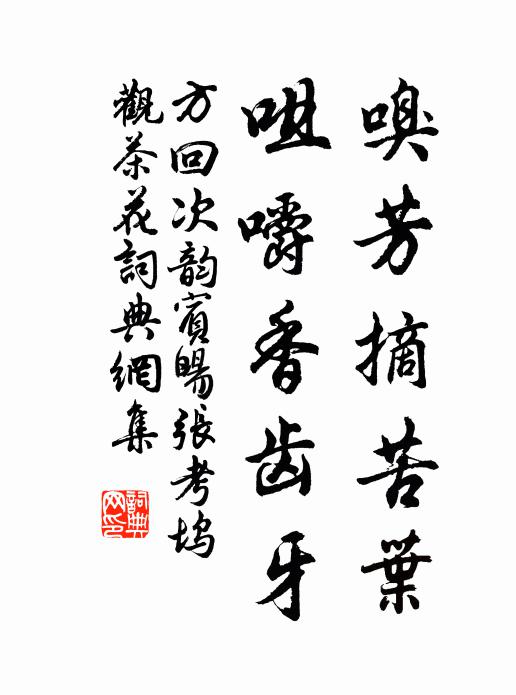 嗅芳摘苦葉
咀嚼香齒牙
方回次韵賓暘張考塢
觀茶花詞典網集
詞典网印